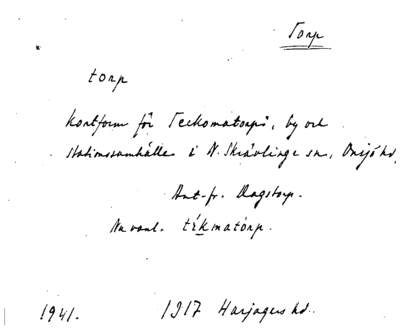 Torp
torp
kortform för Teckomatorps, by och
stationssamhälle i N. Skrävlinge sn, Onsjö hd,
Ant. fr. Dagstorp.
Nu vanl. tékmatòrp.
1941. 1917 Harjagers hd.